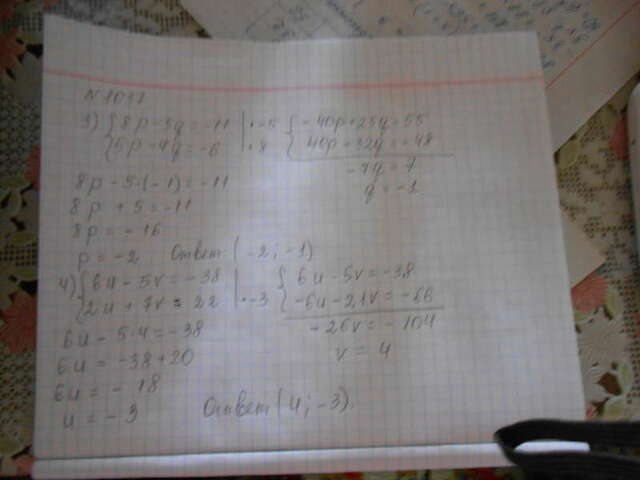 N 1017
3) { 8p - 5q = -11 | · -5 { -40p + 25q = 55
{ 5p - 4q = -6 | · 8 { 40p - 32q = -48
-7q = 7
q = -1
8p - 5·(-1) = -11
8p + 5 = -11
8p = -16
p = -2 Ответ: (-2; -1)
4) { 6u - 5v = -38 { 6u - 5v = -38
{ 2u + 7v = 22 | · -3 { -6u - 21v = -66
-26v = -104
v = 4
6u - 5·4 = -38
6u = -38 + 20
6u = -18
u = -3 Ответ (4; -3).